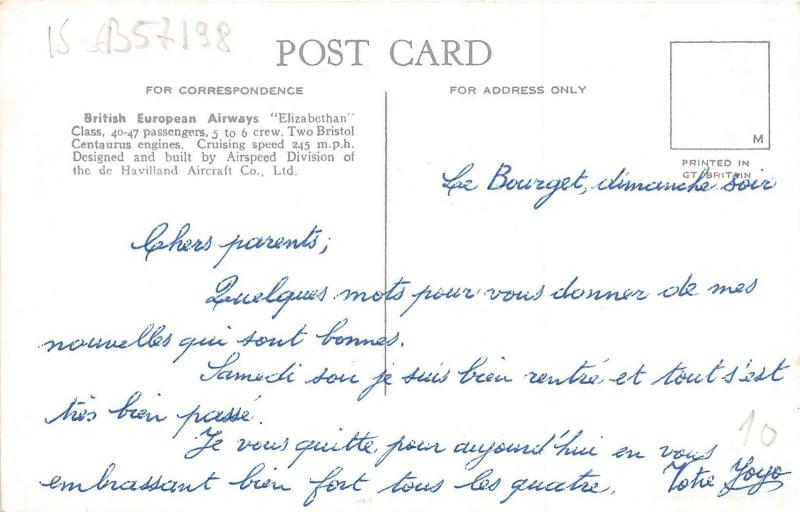 15 AB57198
POST CARD
FOR CORRESPONDENCE
FOR ADDRESS ONLY
British European Airways "Elizabethan"
Class, 40-47 passengers, 5 to 6 crew. Two Bristol
Centaurus engines. Cruising speed 245 m.p.h.
Designed and built by Airspeed Division of
the de Havilland Aircraft Co., Ltd.
M
PRINTED IN
GT. BRITAIN
Le Bourget, dimanche soir
Chers parents;
Quelques mots pour vous donner de mes
nouvelles qui sont bonnes.
Samedi soir je suis bien rentré et tout s'est
très bien passé.
Je vous quitte pour aujourd'hui en vous
embrassant bien fort tous les quatre. Votre Yoyo
10